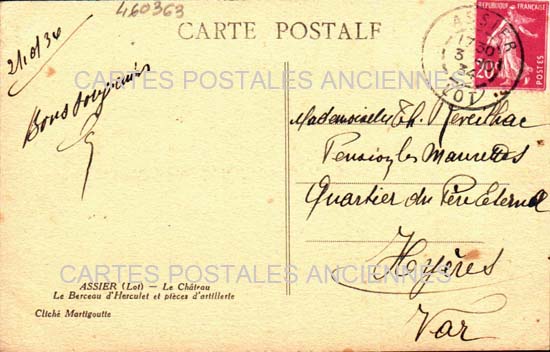 460363
CARTE POSTALE
RÉPUBLIQUE FRANÇAISE
POSTES
20
ASSIER
17 30
34
LOT
CARTES POSTALES ANCIENNES
Bons souvenirs
Mademoiselle Th. Reveilhac
Pension les Maurettes
Quartier du Père Eternel
Hyères
Var
CARTES POSTALES ANCIENNES
ASSIER (Lot) — Le Château
Le Berceau d'Herculet et pièces d'artillerie
Cliché Martigoutte